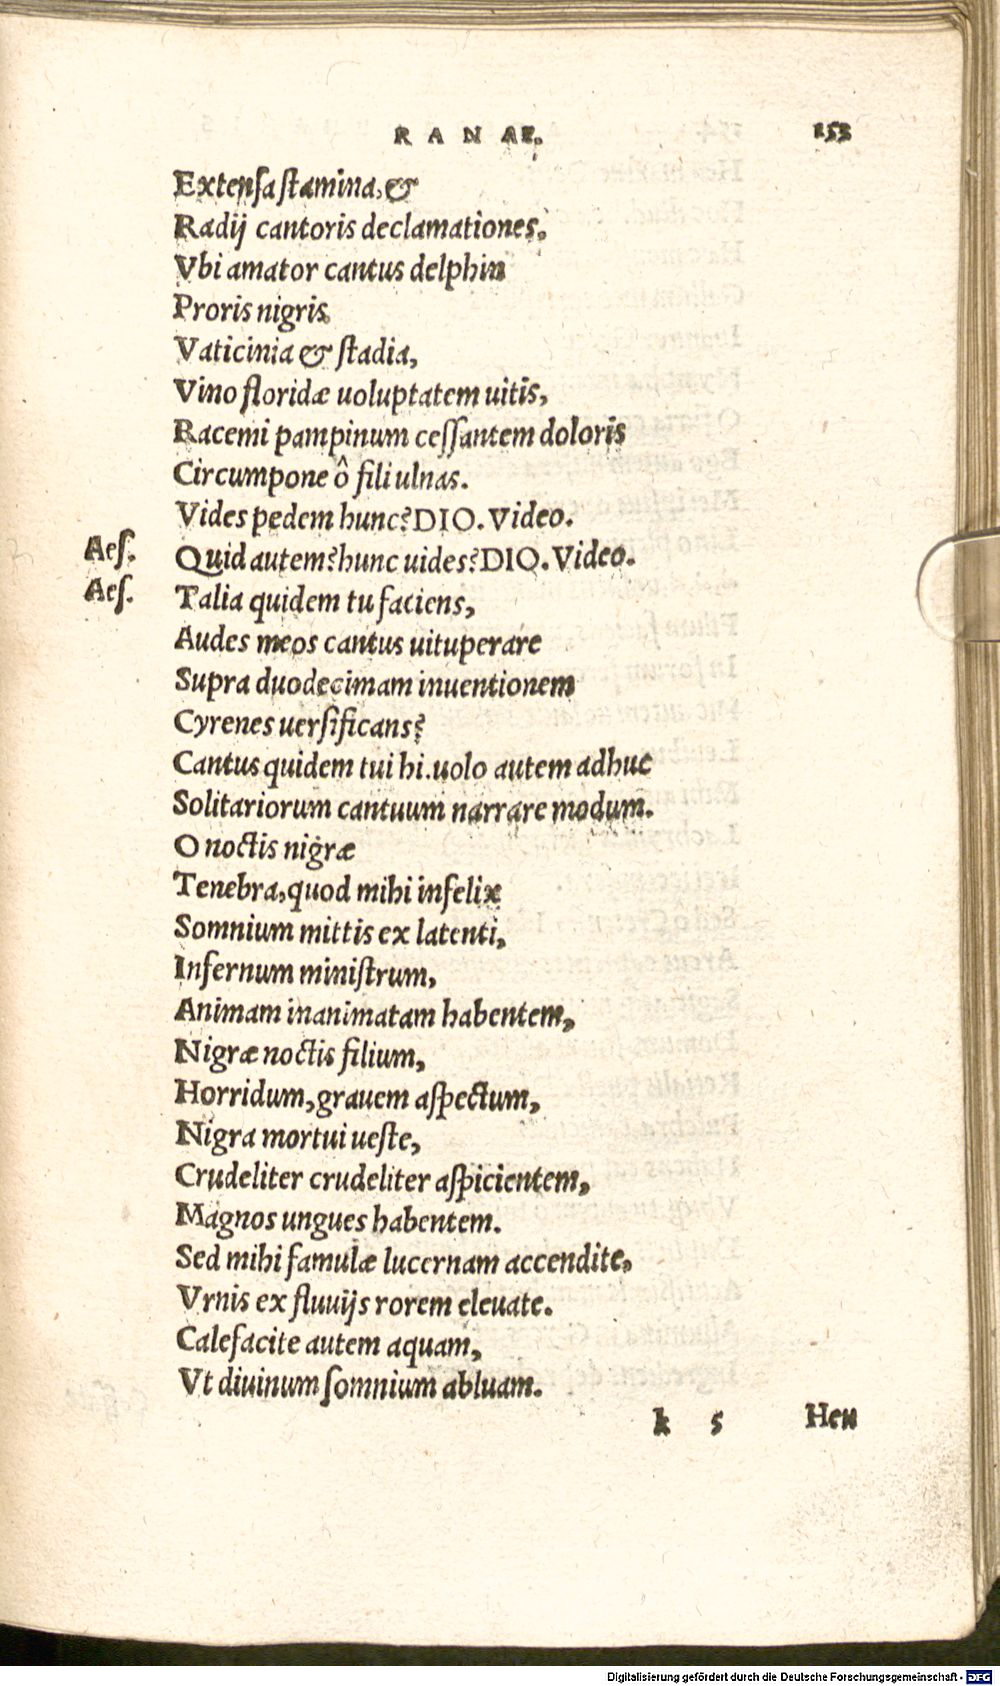 R A N AE. 153
Extensa stamina, &
Radij cantoris declamationes.
Vbi amator cantus delphin
Proris nigris,
Vaticinia & stadia,
Vino floridæ uoluptatem uitis,
Racemi pampinum cessantem doloris
Circumpone ô fili ulnas.
Vides pedem hunc? DIO. Video.
Aes. Quid autem? hunc uides? DIO. Video.
Aes. Talia quidem tu faciens,
Audes meos cantus uituperare
Supra duodecimam inuentionem
Cyrenes uersificans?
Cantus quidem tui hi. uolo autem adhuc
Solitariorum cantuum narrare modum.
O noctis nigræ
Tenebra, quod mihi infelix
Somnium mittis ex latenti,
Infernum ministrum,
Animam inanimatam habentem,
Nigræ noctis filium,
Horridum, grauem aspectum,
Nigra mortui ueste,
Crudeliter crudeliter aspicientem,
Magnos ungues habentem.
Sed mihi famulæ lucernam accendite,
Vrnis ex fluuijs rorem eleuate.
Calefacite autem aquam,
Vt diuinum somnium abluam.
k 5 Heu
Digitalisierung gefördert durch die Deutsche Forschungsgemeinschaft - DFG